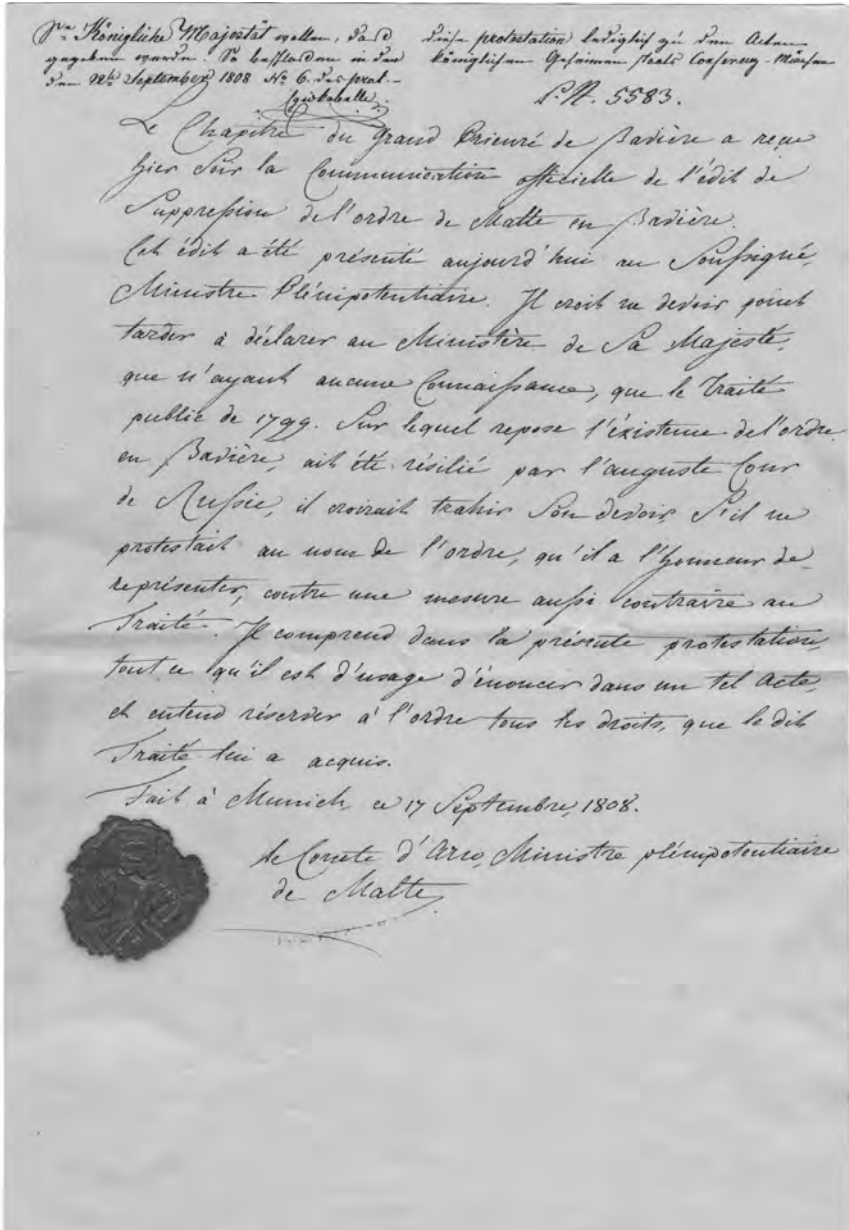 Se. Königliche Majestät wollen, dass diese protestation lediglich zu den Acten
gegeben werde. So beschlossen in der königlichen Geheimen Staats Conferenz - München
den September 1808 No. 6. des prot-
P.N. 5583.
Le Chapitre du Grand Prieuré de Bavière a reçu
hier soir la Communication officielle de l'édit de
Suppression de l'ordre de Malte en Bavière.
Cet édit a été présenté aujourd'hui au Soussigné,
Ministre Plénipotentiaire. Il croit ne devoir point
tarder à déclarer au Ministère de Sa Majesté,
que n'ayant aucune Connaissance, que le Traité
public de 1799. Sur lequel repose l'éxistence de l'ordre
en Bavière, ait été résilié par l'auguste Cour
de Russie, il croirait trahir Son devoir, S'il ne
protestait au nom de l'ordre, qu'il a l'honneur de
représenter, contre une mesure aussi contraire au
Traité. Il comprend dans la présente protestation,
tout ce qu'il est d'usage d'énoncer dans un tel Acte,
et entend réserver à l'ordre tous les droits, que le dit
Traité lui a acquis.
Fait à Munich, ce 17 Septembre, 1808.
le Comte d'Arco, Ministre plénipotentiaire
de Malte